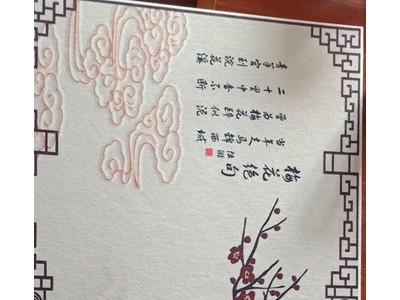 梅花绝句
陆游
当年走马锦西城
曾为梅花醉似泥
二十里中香不断
青羊宫到浣花溪